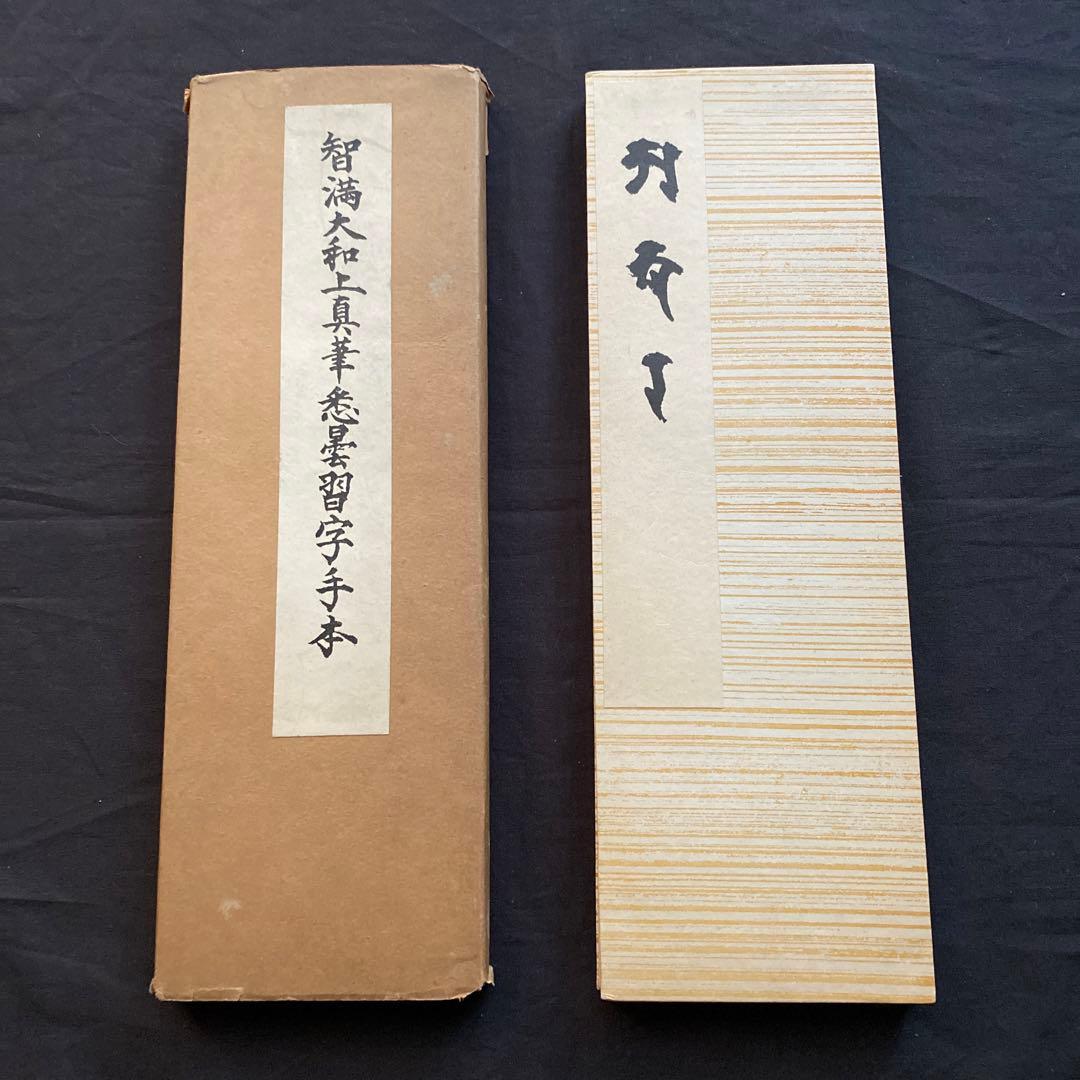 智満大和上真筆悉曇習字手本